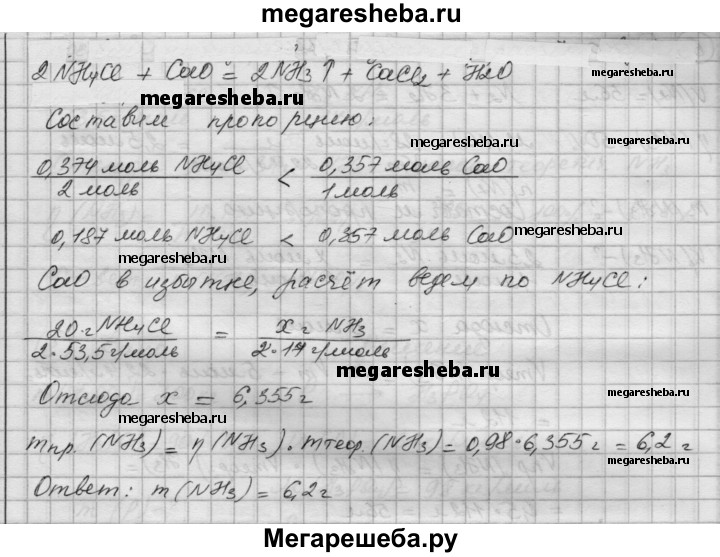 megaresheba.ru
2NH4Cl + CaO = 2NH3↑ + CaCl2 + H2O
megaresheba.ru
Составим пропорцию:
megaresheba.ru
0,374 моль NH4Cl / 2 моль < 0,357 моль CaO / 1 моль
0,187 моль NH4Cl < 0,357 моль CaO
megaresheba.ru
megaresheba.ru
CaO в избытке, расчёт ведем по NH4Cl:
20 г NH4Cl / 2·53,5 г/моль = x г NH3 / 2·17 г/моль
megaresheba.ru
megaresheba.ru
Отсюда x = 6,355 г
megaresheba.ru
mпр. (NH3) = η (NH3) · mтеор. (NH3) = 0,98·6,355 г = 6,2 г
megaresheba.ru
Ответ: m (NH3) = 6,2 г
megaresheba.ru
Мегарешеба.ру